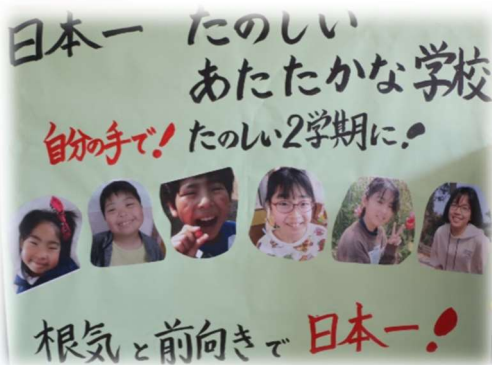 日本一 たのしい
あたたかな学校
自分の手で! たのしい2学期に!
根気と前向きで 日本一!